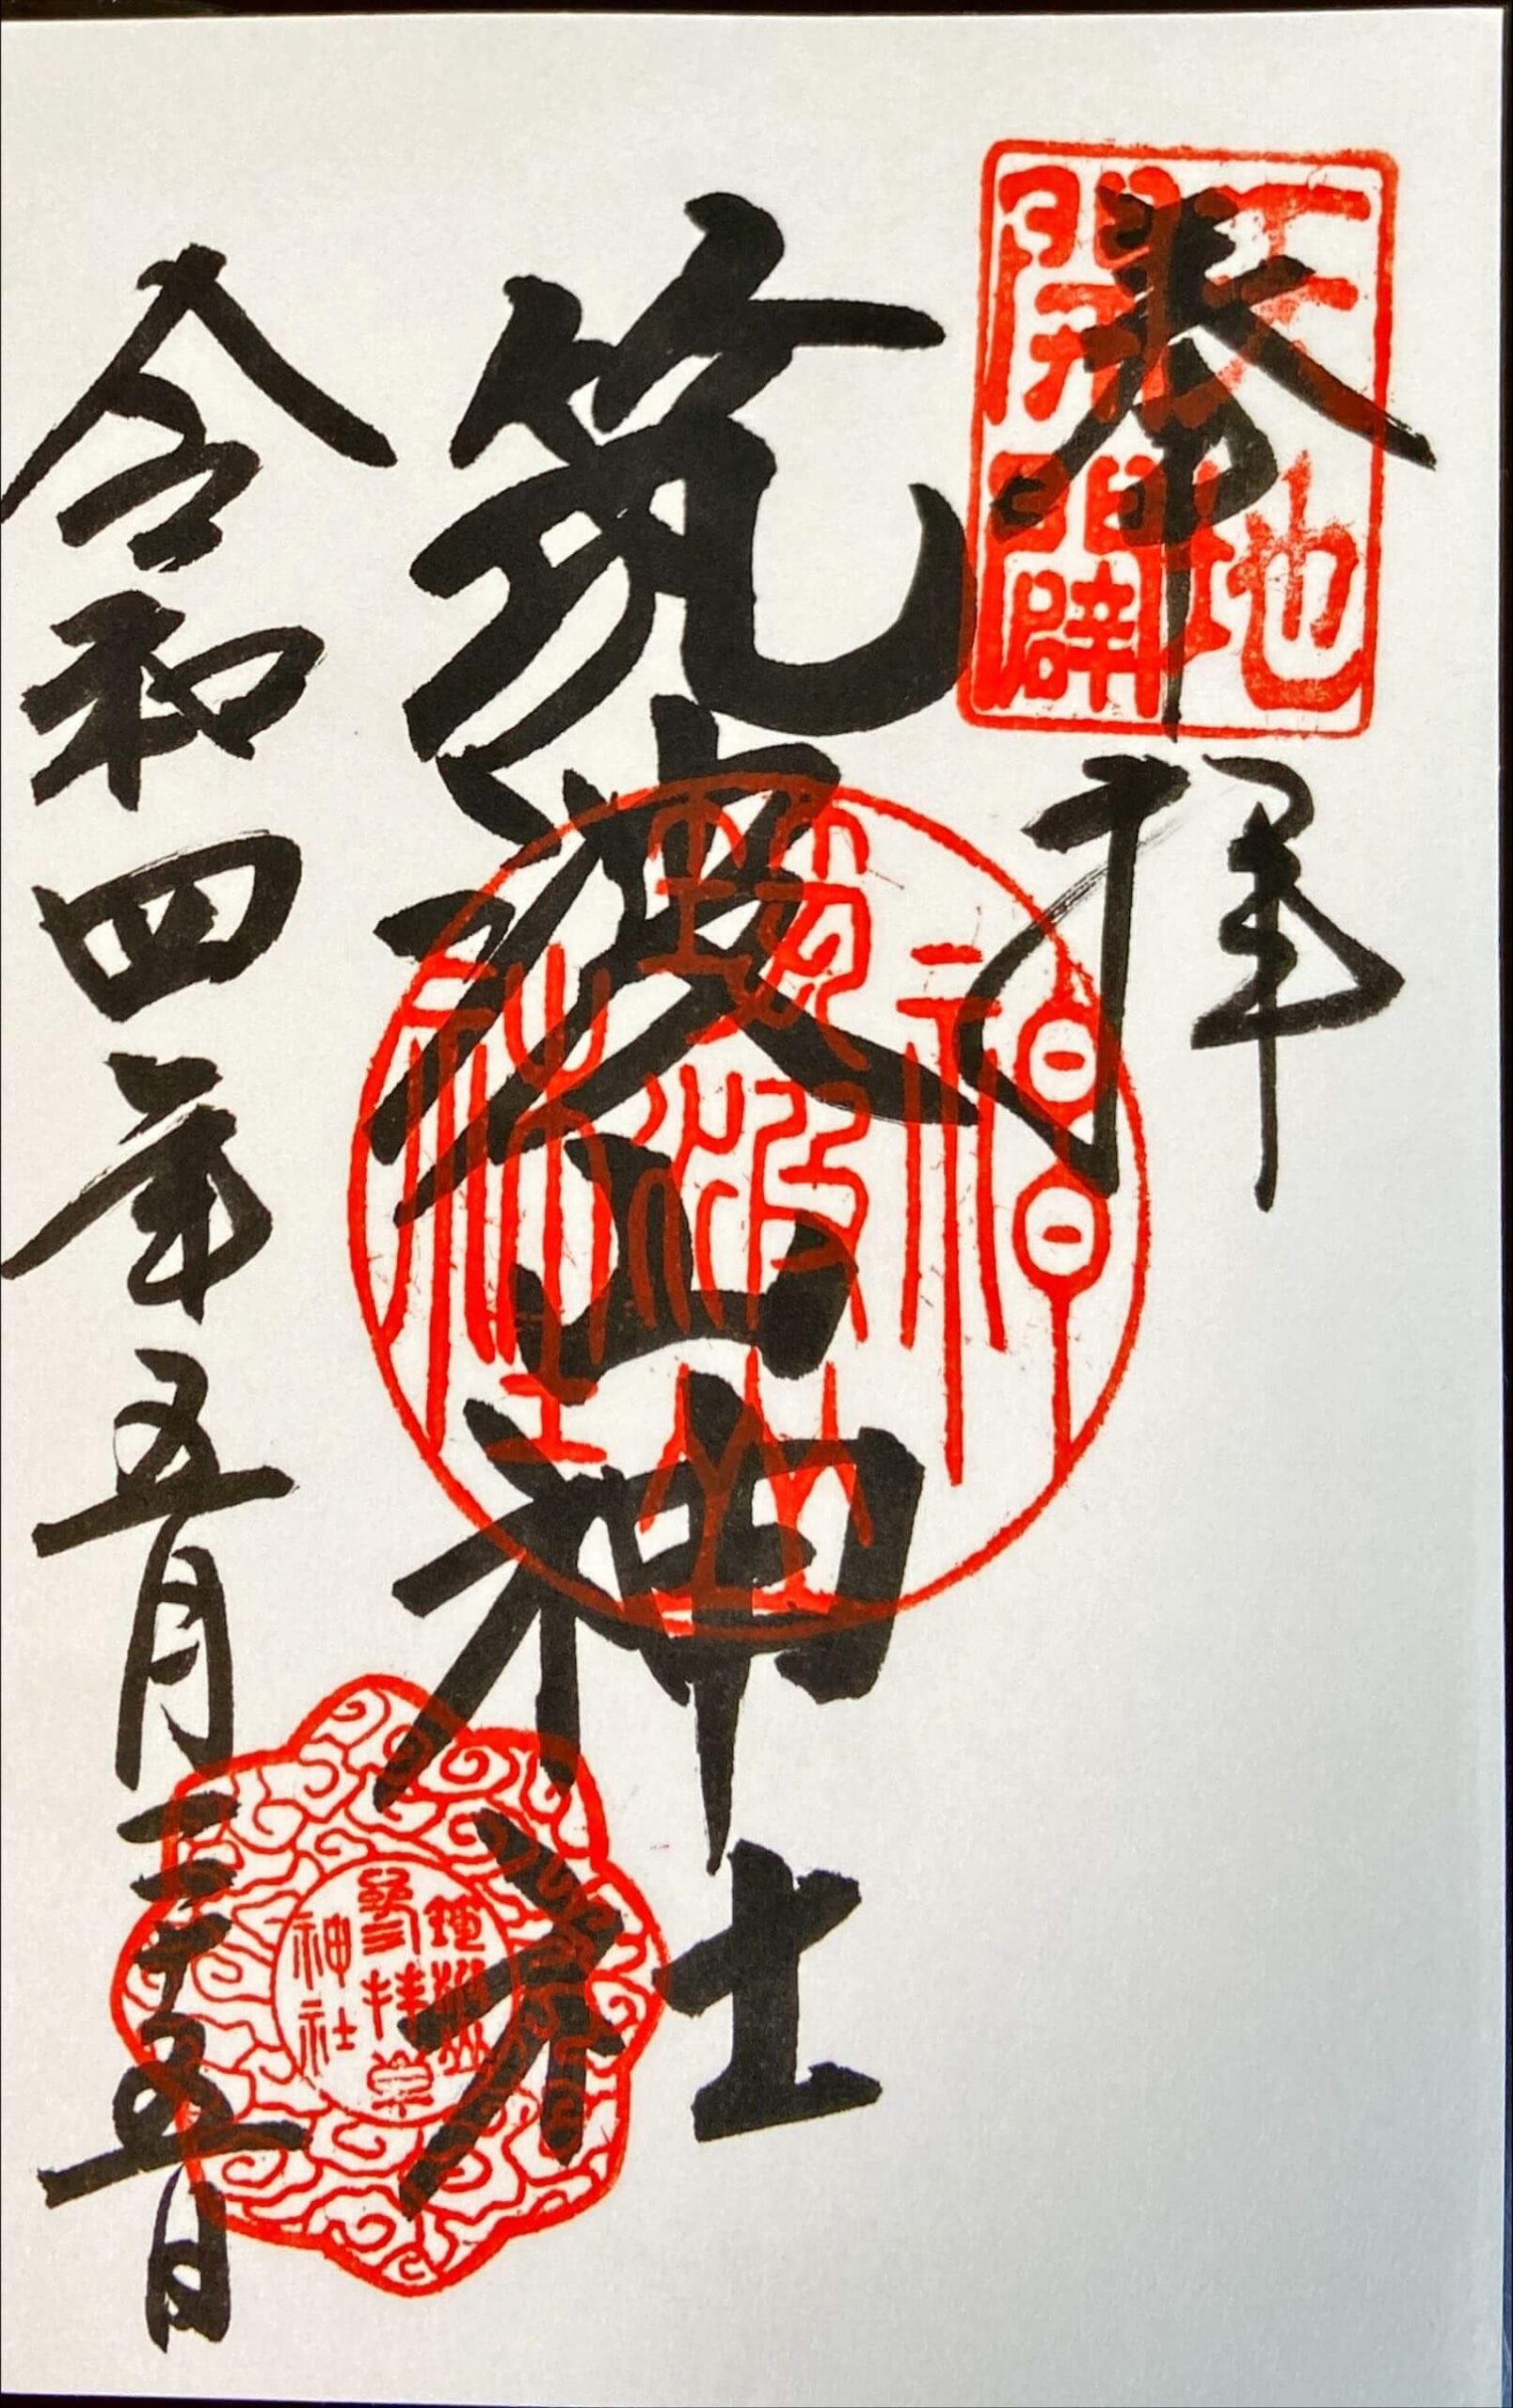 奉拝
天地
開闢
筑波山神社
筑波山
参拝章
神社
令和四年五月二十五日